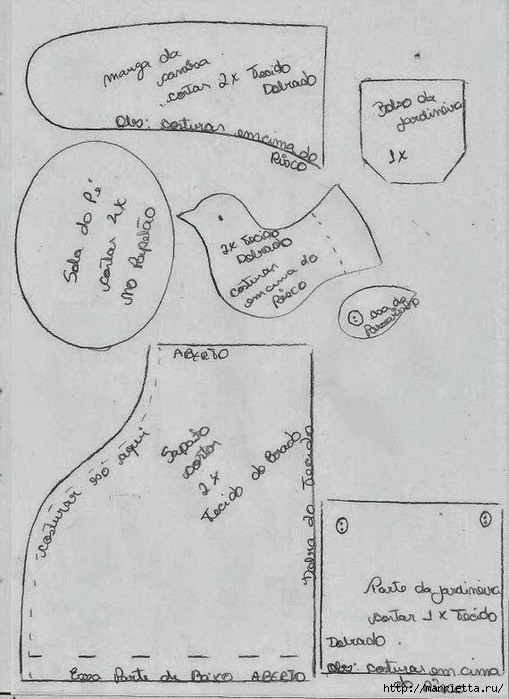 manga da
camisa
cortar 2x Tecido
Dobrado
Obs: costurar em cima do
Risco
Bolso da
jardineira
1x
Sola do Pé
cortar 2x
no Papelão
2x Tecido
Dobrado
costurar
em cima do
Risco
asa do
Passarinho
ABERTO
costurar só aqui
Sapato
cortar
2x
Tecido do
Dobra do Tecido
Essa Parte de Baixo ABERTO
Parte da jardineira
cortar 1x Tecido
Dobrado.
Obs: costurar em cima
do Risco
http://manrietta.ru/